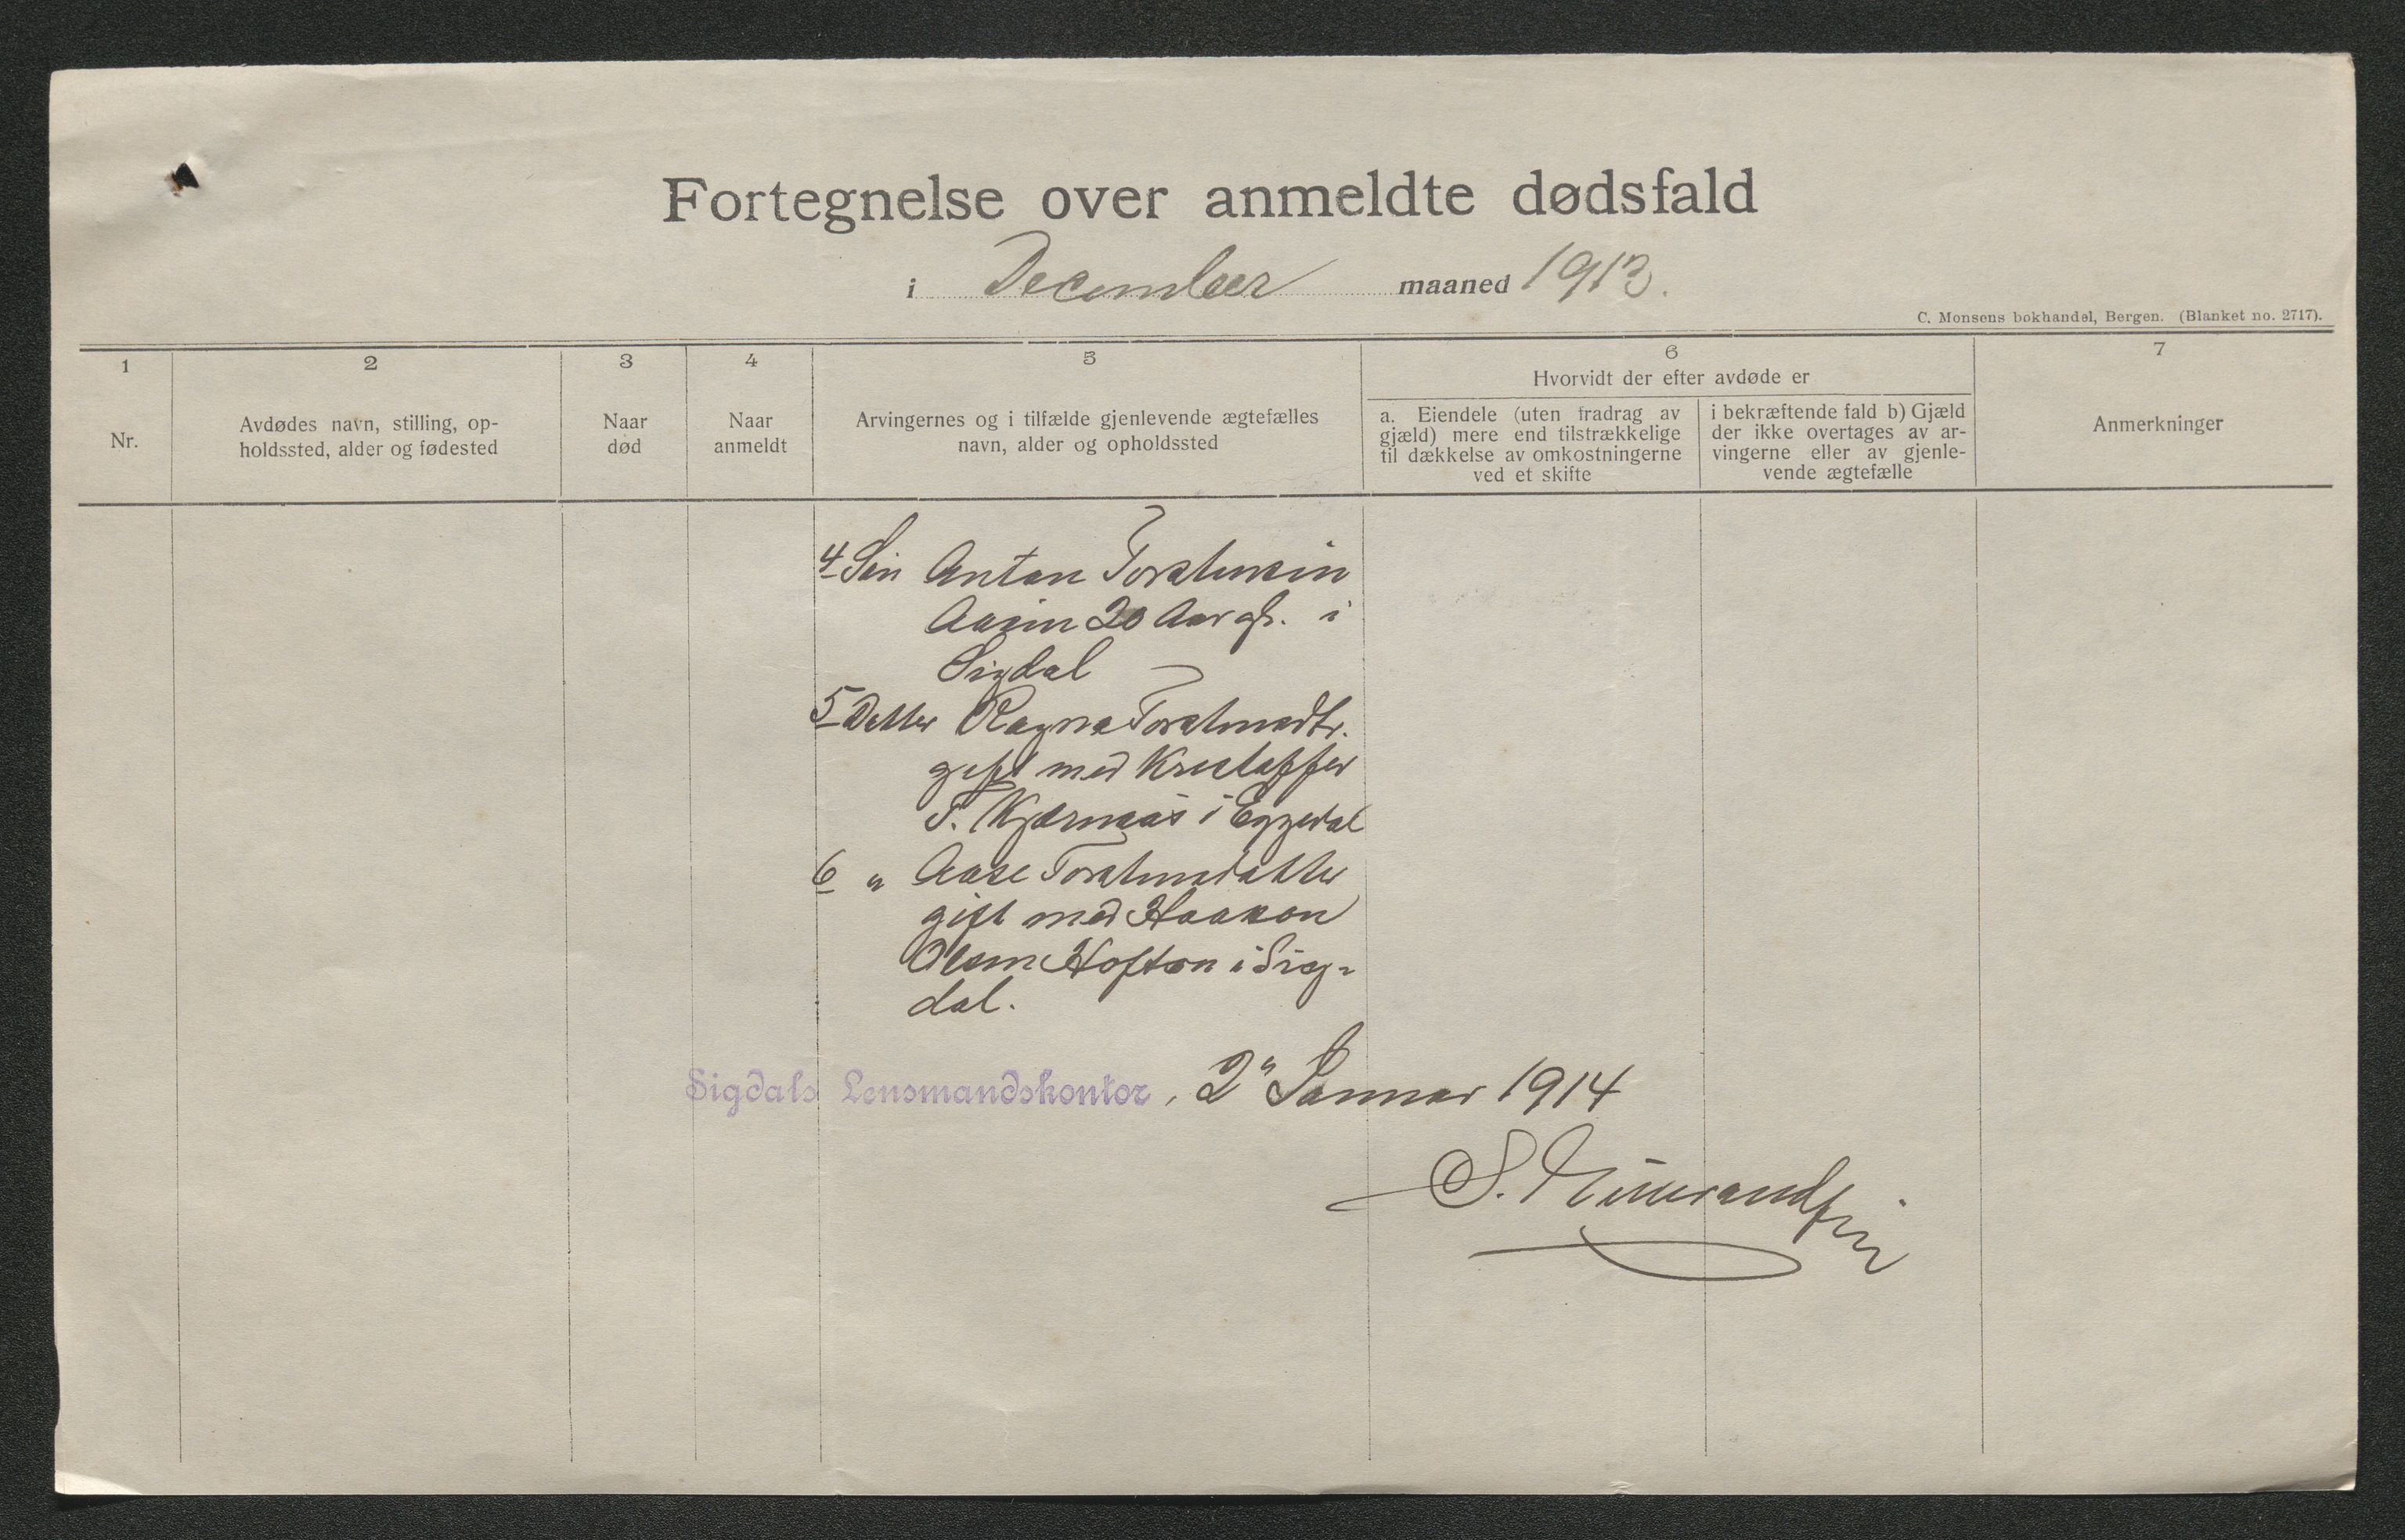 Fortegnelse over anmeldte dødsfald
i December maaned 1913.
C. Monsens bokhandel, Bergen. (Blanket no. 2717).
1
2
3
4
5
6
7
Nr.
Avdødes navn, stilling, op-
holdssted, alder og fødested
Naar
død
Naar
anmeldt
Arvingernes og i tilfælde gjenlevende ægtefælles
navn, alder og opholdssted
Hvorvidt der efter avdøde er
a. Eiendele (uten fradrag av
gjæld) mere end tilstrækkelige
til dækkelse av omkostningerne
ved et skifte
i bekræftende fald b) Gjæld
der ikke overtages av ar-
vingerne eller av gjenle-
vende ægtefælle
Anmerkninger
4 Søn Anton Torstensen
Aasen 20 Aar gl. i
Sigdal
5 Datter Ragna Torstensdtr.
gift med Kristoffer
T. Kjærnaas i Eggedal
6 " Aase Torstensdatter
gift med Haakon
Olsen Hofton i Sig-
dal.
Sigdals Lensmandskontor, 2" Januar 1914
S.